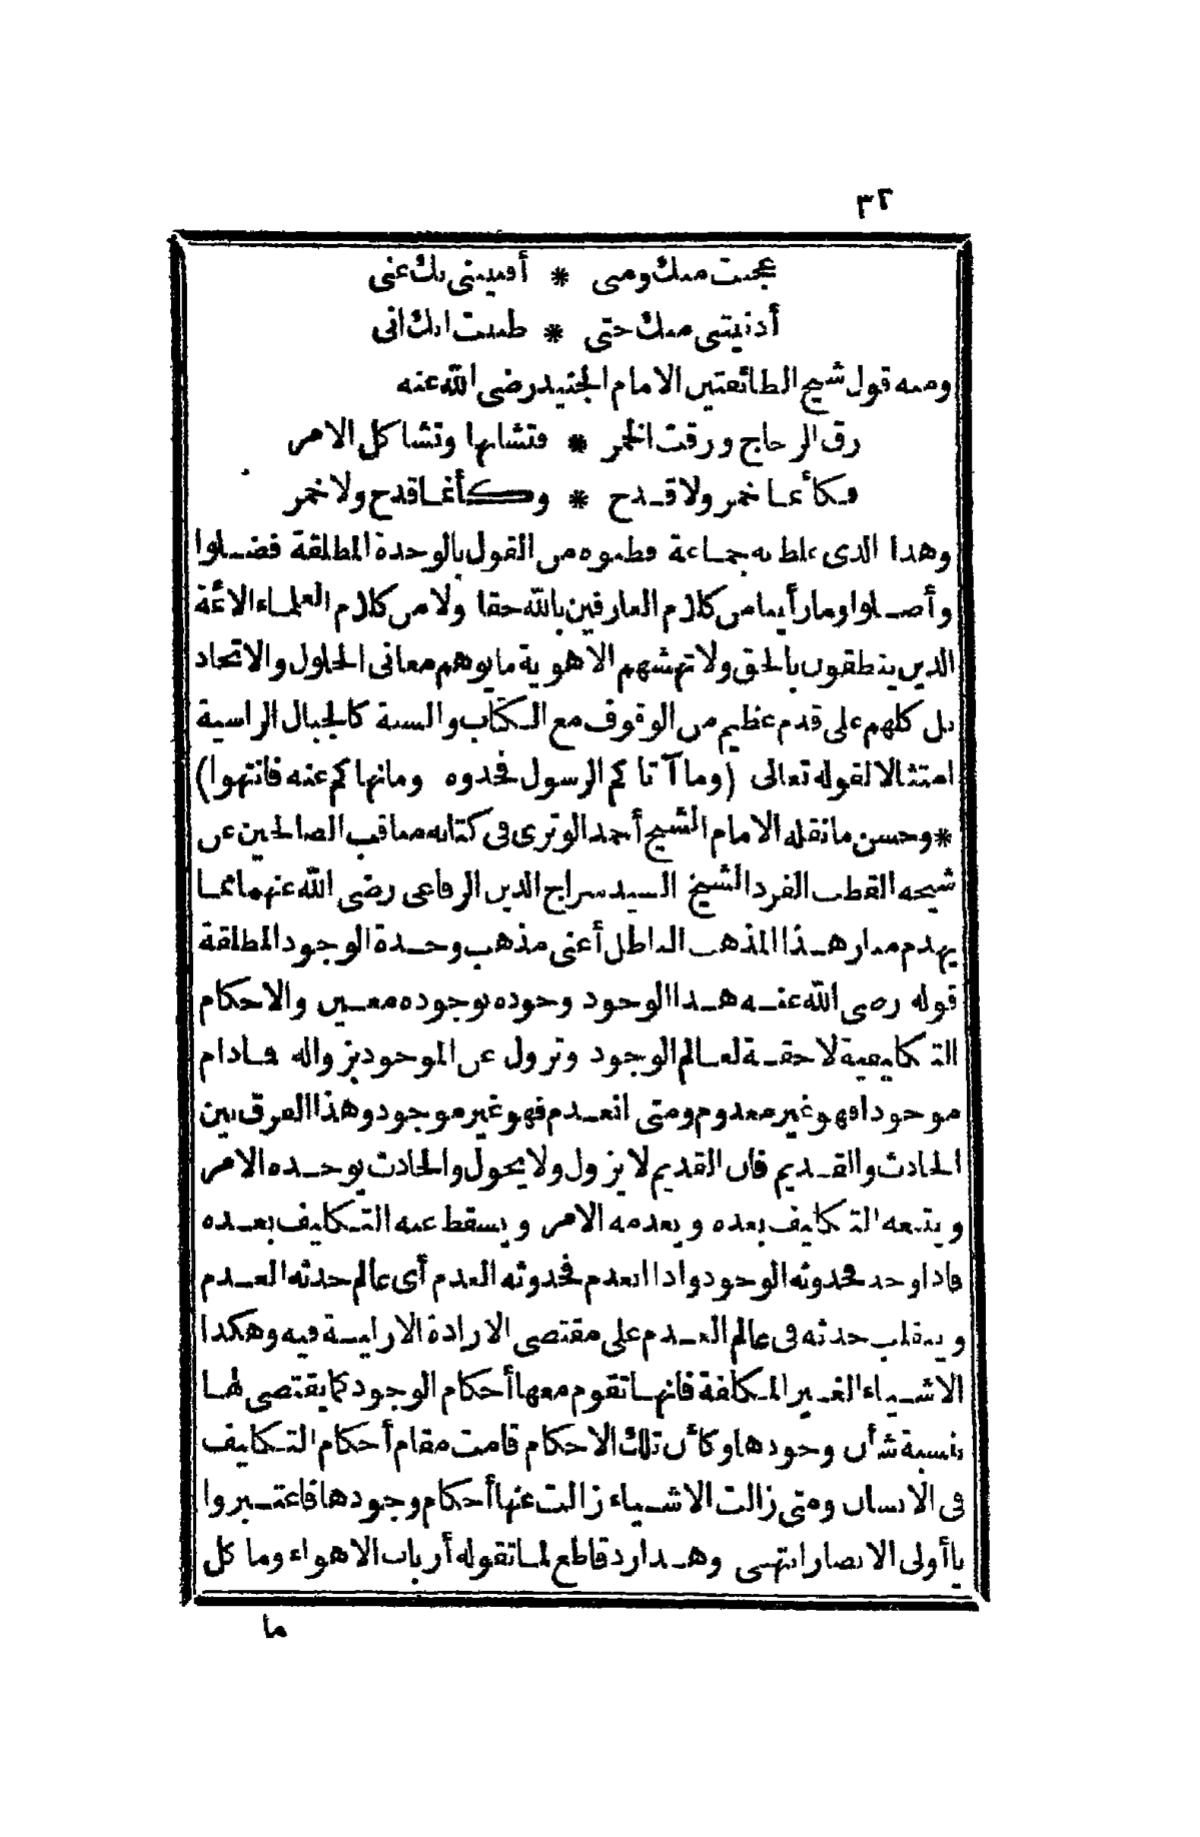 ٣٢
عجبت منك ومنى * أفنيتنى بك عنى
أدنيتنى منك حتى * ظننت انك انى
ومنه قول شيخ الطائفتين الامام الجنيد رضى الله عنه
رق الزجاج ورقت الخمر * فتشابها وتشاكل الامر
فكأنما خمر ولا قدح * وكأنما قدح ولا خمر
وهذا الذى غلط به جماعة فظنوه من القول بالوحدة المطلقة فضلوا
وأضلوا وما رأينا من كلام العارفين بالله حقا ولا من كلام العلماء الائمة
الذين ينطقون بالحق ولا تهشهم الاهوية ما يوهم معانى الحلول والاتحاد
بل كلهم على قدم عظيم من الوقوف مع الكتاب والسنة كالجبال الراسية
امتثالا لقوله تعالى (وما آتاكم الرسول فخذوه وما نهاكم عنه فانتهوا)
* وحسن ما نقله الامام الشيخ أحمد الوترى فى كتابه مناقب الصالحين عن
شيخه القطب الفرد الشيخ السيد سراج الدين الرفاعى رضى الله عنهما مما
يهدم منار هذا المذهب الباطل أعنى مذهب وحدة الوجود المطلقة
قوله رضى الله عنه هذا الوجود وجوده بوجوده معين والاحكام
التكليفية لاحقة لعالم الوجود وتزول عن الموجود بزواله فمادام
موجودا فهو غير معدوم ومتى انعدم فهو غير موجود وهذا الفرق بين
الحادث والقديم فان القديم لا يزول ولا يحول والحادث يوجده الامر
ويتبعه التكليف بعده ويعدمه الامر ويسقط عنه التكليف بعده
فاذا وجد فحدوثه الوجود واذا انعدم فحدوثه العدم أى عالم حدثه العدم
وينقلب حدثه فى عالم العدم على مقتضى الارادة الازلية فيه وهكذا
الاشياء الغير المكلفة فانها تقوم معها أحكام الوجود كما يقتضى لها
بنسبة شأن وجودها وكأن تلك الاحكام قامت مقام أحكام التكليف
فى الانسان ومتى زالت الاشياء زالت عنها أحكام وجودها فاعتبروا
يا أولى الابصار انتهى وهذا رد قاطع لما تقوله أرباب الاهواء وما كل
ما